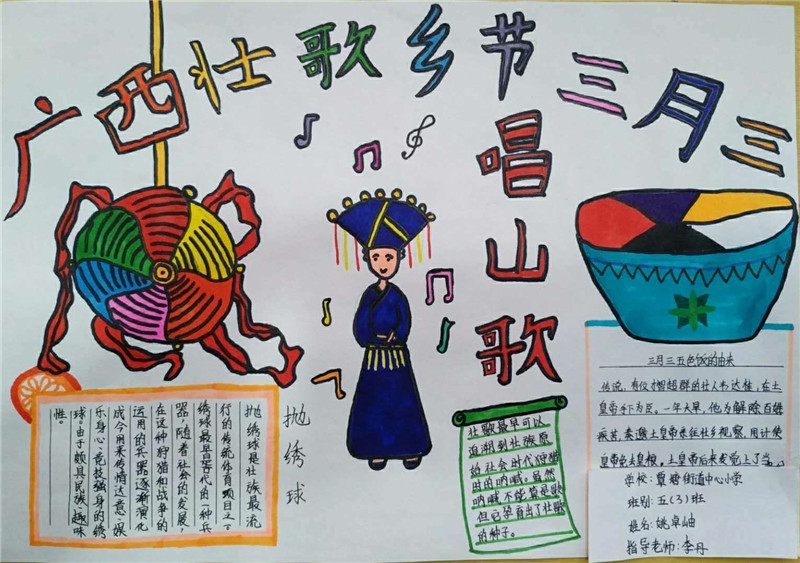 广西壮歌乡节三月三
唱山歌
抛绣球
抛绣球是壮族最流
行的传统体育项目之一。
绣球最早是古代的一种兵
器,随着社会的发展,
在这种狩猎和战争的
运用的兵器逐渐演化
成今用来传情达意、娱
乐身心、竞技强身的绣
球。由于颇具民族、趣味
性。
壮歌最早可以
追溯到壮族原
始社会时代狩猎
时的呐喊。虽然
呐喊不能算是歌
但它孕育出了壮歌
的种子。
三月三五色饭的由来
传说,有位才智超群的壮人韦达桂,在土
皇帝手下为臣。一年大旱,他为解除百姓
疾苦,奏邀土皇帝来往壮乡视察,用计使
皇帝免去皇粮。土皇帝后来发觉上了当。
学校:覃塘街道中心小学
班别:五(3)班
姓名:姚卓岫
指导老师:李丹